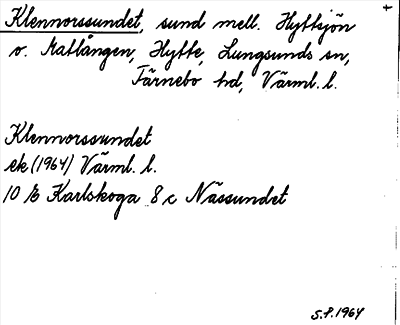 Klennorssundet, sund mell. Hyttsjön +
o. Matlången, Hytte, Lungsunds sn,
Färnebo hd, Värml. l.
Klennorssundet
ek (1964) Värml. l.
10 E Karlskoga 8 c Nässundet
S.P. 1964